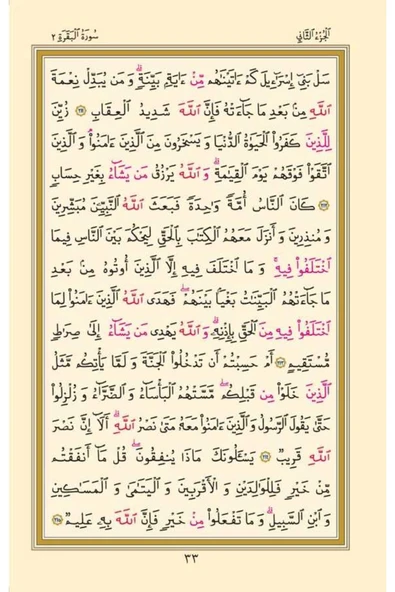 الجزء الثاني سورة البقرة ٢
سَلْ بَنِي إِسْرَائِيلَ كَمْ اٰتَيْنَاهُمْ مِنْ اٰيَةٍ بَيِّنَةٍ وَ مَن يُبَدِّلْ نِعْمَةَ
اللّٰهِ مِنْ بَعْدِ مَا جَاءَتْهُ فَإِنَّ اللّٰهَ شَدِيدُ الْعِقَابِ ٢١١ زُيِّنَ
لِلَّذِينَ كَفَرُوا الْحَيٰوةُ الدُّنْيَا وَ يَسْخَرُونَ مِنَ الَّذِينَ اٰمَنُوا وَ الَّذِينَ
اتَّقَوْا فَوْقَهُمْ يَوْمَ الْقِيٰمَةِ وَ اللّٰهُ يَرْزُقُ مَن يَشَاءُ بِغَيْرِ حِسَابٍ
٢١٢ كَانَ النَّاسُ أُمَّةً وَاحِدَةً فَبَعَثَ اللّٰهُ النَّبِيِّينَ مُبَشِّرِينَ
وَ مُنذِرِينَ وَ أَنزَلَ مَعَهُمُ الْكِتٰبَ بِالْحَقِّ لِيَحْكُمَ بَيْنَ النَّاسِ فِيمَا
اخْتَلَفُوا فِيهِ وَ مَا اخْتَلَفَ فِيهِ إِلَّا الَّذِينَ أُوتُوهُ مِنْ بَعْدِ
مَا جَاءَتْهُمُ الْبَيِّنَاتُ بَغْيًا بَيْنَهُمْ فَهَدَى اللّٰهُ الَّذِينَ اٰمَنُوا لِمَا
اخْتَلَفُوا فِيهِ مِنَ الْحَقِّ بِإِذْنِهِ وَ اللّٰهُ يَهْدِى مَن يَشَاءُ إِلَى صِرَاطٍ
مُّسْتَقِيمٍ ٢١٣ أَمْ حَسِبْتُمْ أَن تَدْخُلُوا الْجَنَّةَ وَ لَمَّا يَأْتِكُم مَّثَلُ
الَّذِينَ خَلَوْا مِن قَبْلِكُم مَّسَّتْهُمُ الْبَأْسَاءُ وَ الضَّرَّاءُ وَ زُلْزِلُوا
حَتَّى يَقُولَ الرَّسُولُ وَ الَّذِينَ اٰمَنُوا مَعَهُ مَتَى نَصْرُ اللّٰهِ أَلَا إِنَّ نَصْرَ
اللّٰهِ قَرِيبٌ ٢١٤ يَسْـَٔلُونَكَ مَاذَا يُنفِقُونَ قُلْ مَا أَنفَقْتُم
مِّنْ خَيْرٍ فَلِلْوَالِدَيْنِ وَ الْأَقْرَبِينَ وَ الْيَتَامَى وَ الْمَسَاكِينِ
وَ ابْنِ السَّبِيلِ وَ مَا تَفْعَلُوا مِنْ خَيْرٍ فَإِنَّ اللّٰهَ بِهِ عَلِيمٌ ٢١٥
٣٣